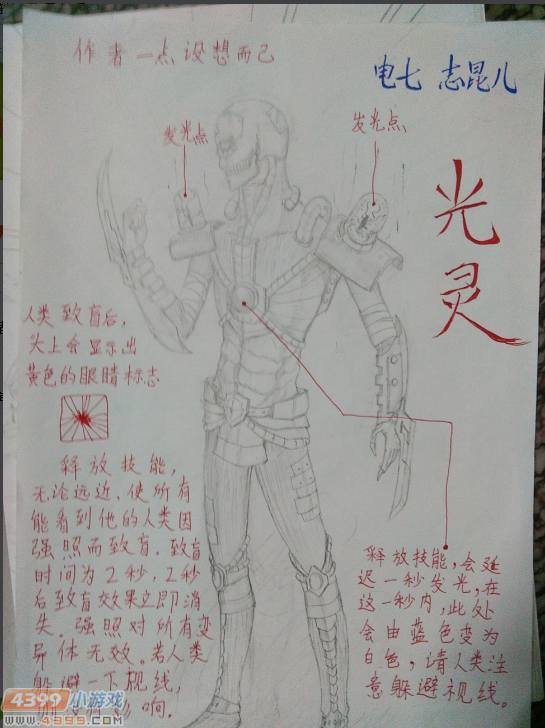 作者一点设想而已
电七 志昆儿
发光点
发光点
光灵
人类致盲后,
头上会显示出
黄色的眼睛标志
释放技能,
无论远近,使所有
能看到他的人类因
强照而致盲.致盲
时间为2秒,2秒
后致盲效果立即消
失.强照对所有变
异体无效。若人类
躲避一下视线,
响.
释放技能,会延
迟一秒发光,在
这一秒内,此处
会由蓝色变为
白色,请人类注
意躲避视线。
4399小游戏
www.4399.com